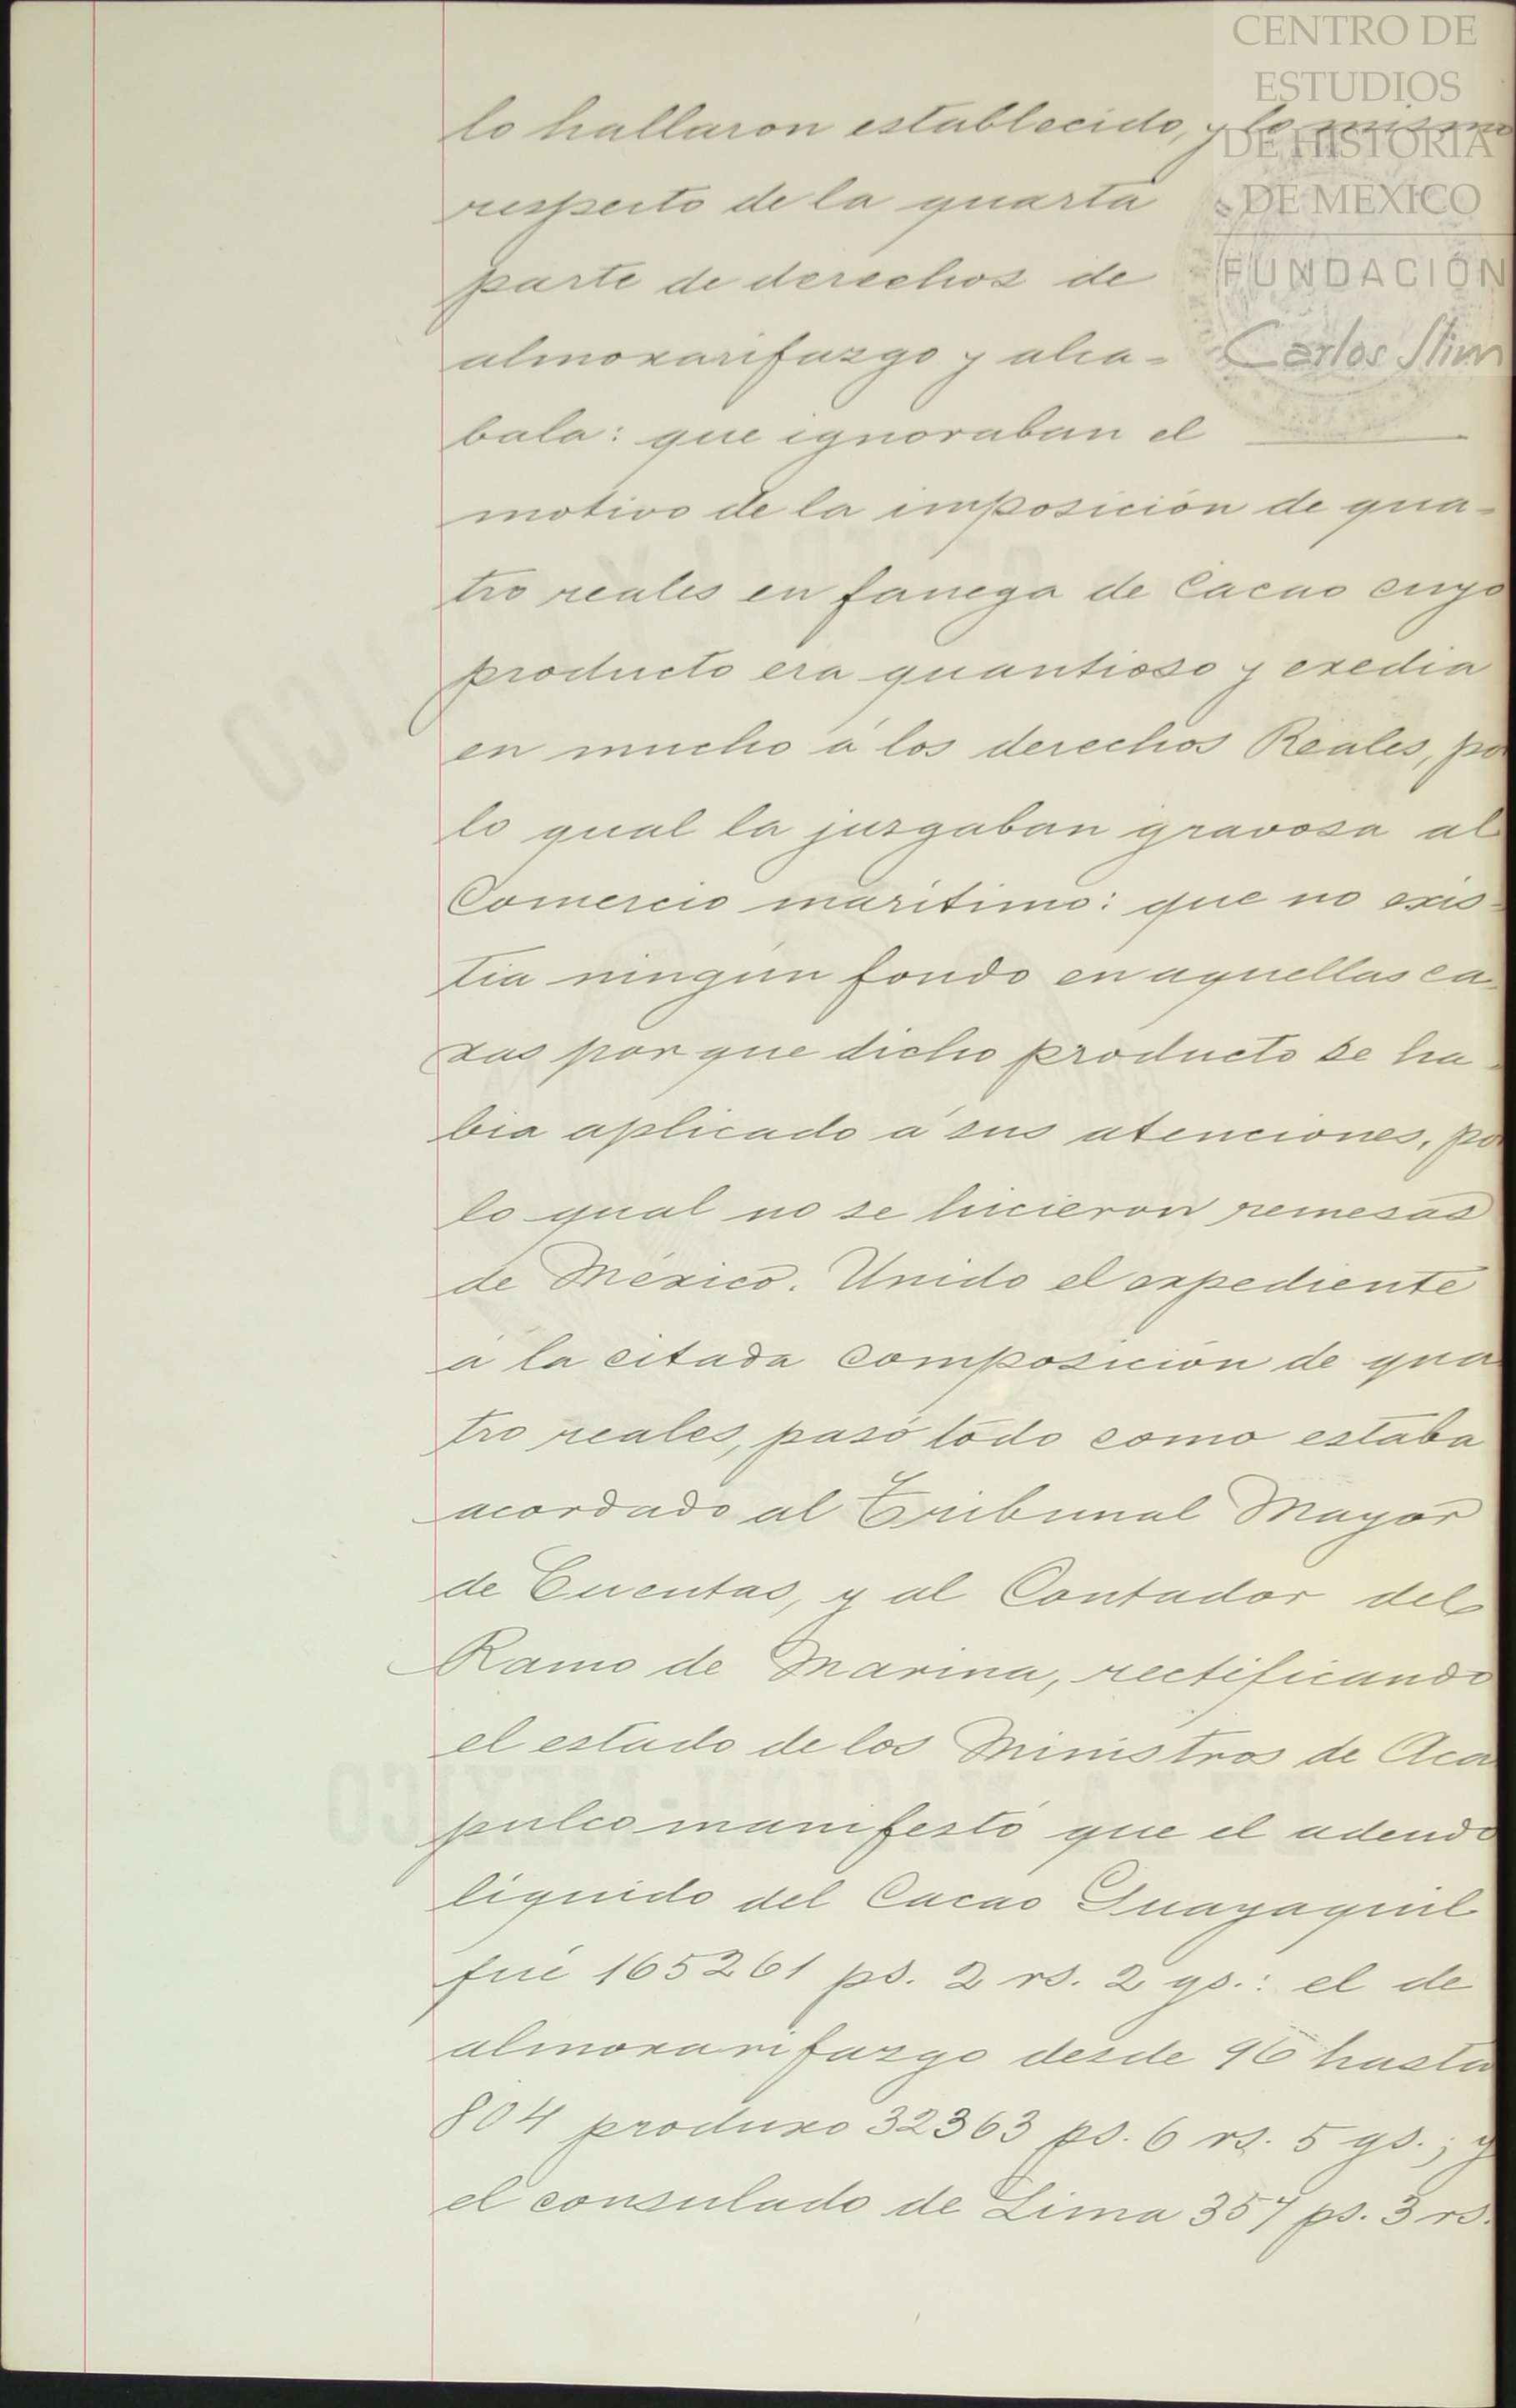 CENTRO DE
ESTUDIOS
DE HISTORIA
DE MEXICO
FUNDACIÓN
Carlos Slim
lo hallaron establecido, y lo mismo
respecto de la quarta
parte de derechos de
almoxarifazgo y alca-
bala: que ignoraban el
motivo de la imposición de qua-
tro reales en fanega de Cacao cuyo
producto era quantioso y exedia
en mucho á los derechos Reales, por
lo qual la juzgaban gravosa al
Comercio marítimo: que no exis-
tia ningún fondo en aquellas ca-
xas porque dicho producto se ha-
bia aplicado á sus atenciones, por
lo qual no se hicieron remesas
de México. Unido el expediente
á la citada composición de qua
tro reales, pasó todo como estaba
acordado al Tribunal Mayor
de Cuentas, y al Contador del
Ramo de Marina, rectificando
el estado de los Ministros de Aca
pulco manifestó que el adeudo
líquido del Cacao Guayaquil
fué 165261 ps. 2 rs. 2 gs.: el de
almoxarifazgo desde 96 hasta
804 produxo 32363 ps. 6 rs. 5 gs.; y
el consulado de Lima 357 ps. 3 rs.